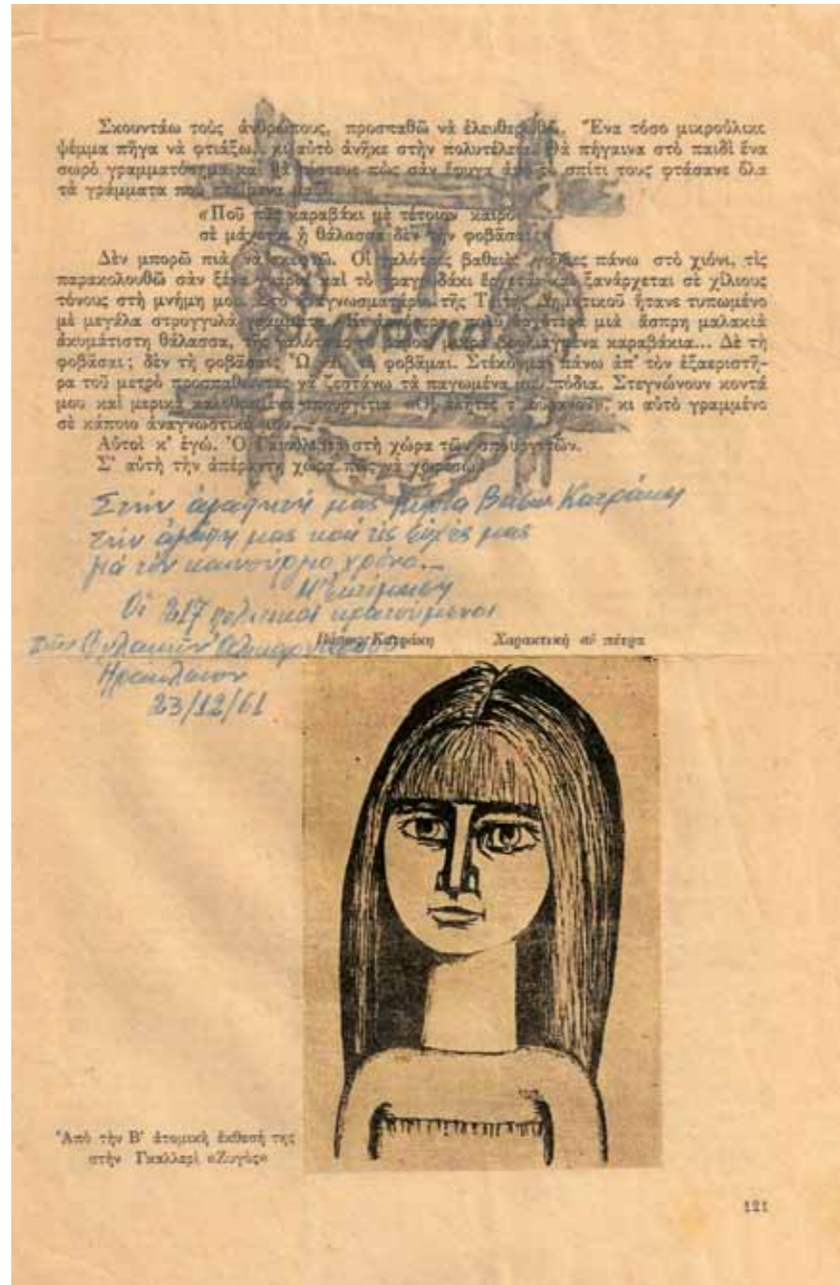 Σκουντάω τοὺς ἀνθρώπους, προσπαθῶ νὰ ἐλευθερωθῶ. Ἕνα τόσο μικρούλικο
ψέμμα πῆγα νὰ φτιάξω.. κι αὐτὸ ἀνῆκε στὴν πολυτέλεια. Θὰ πήγαινα στὸ παιδὶ ἕνα
σωρὸ γραμματόσημα καὶ θὰ πίστευε πὼς σὰν ἔφυγα ἀπὸ τὸ σπίτι τους φτάσανε ὅλα
τὰ γράμματα ποὺ μαζί.
«Ποῦ πᾶς καραβάκι μὲ τέτοιον καιρὸ
σὲ μάχεται ἡ θάλασσα δὲν τὴν φοβᾶσαι;»
Δὲν μπορῶ πιὰ νὰ σκεφτῶ. Οἱ γαλότσες βαθειὲς πάνω στὸ χιόνι, τὶς
παρακολουθῶ σὰν ξένα καὶ τὸ τραγουδάκι ἔρχεται καὶ ξανάρχεται σὲ χίλιους
τόνους στὴ μνήμη μου. Στὸ ἀναγνωσματάριο τῆς Τρίτης Δημοτικοῦ ἤτανε τυπωμένο
μὲ μεγάλα στρογγυλὰ γράμματα. πολὺ ἀργότερα μιὰ ἄσπρη μαλακιὰ
ἀκυμάτιστη θάλασσα, τῆς μικρὰ βουλιαγμένα καραβάκια... Δὲ τὴ
φοβᾶσαι; δὲν τὴ φοβᾶσαι; τὴ φοβᾶμαι. Στέκομαι πάνω ἀπ' τὸν ἐξαεριστῆ-
ρα τοῦ μετρὸ προσπαθώντας νὰ ζεστάνω τὰ παγωμένα μου πόδια. Στεγνώνουν κοντά
μου καὶ μερικὰ σπουργίτια «Οἱ ἀλῆτες τ' οὐρανοῦ», κι αὐτὸ γραμμένο
σὲ κάποιο ἀναγνωστικό μου.
Αὐτοὶ κ' ἐγώ. Ὁ Γκιούλιβερ στὴ χώρα τῶν σπουργιτιῶν.
Σ' αὐτὴ τὴν ἀπέραντη χώρα πῶς νὰ χωρέσω;
Στὴν ἀγαπητή μας κυρία Βάσω Κατράκη
τὴν ἀγάπη μας καὶ τὶς εὐχές μας
γιὰ τὸν καινούργιο χρόνο.
Μ' ἐκτίμηση
Οἱ 217 πολιτικοὶ κρατούμενοι
τῶν Φυλακῶν Ἀλικαρνασσοῦ
Ἡρακλείου
23/12/61
Βάσως Κατράκη Χαρακτικὴ σὲ πέτρα
Ἀπὸ τὴν Β' ἀτομικὴ ἔκθεσή της
στὴν Γκαλλερὶ «Ζυγὸς»
121